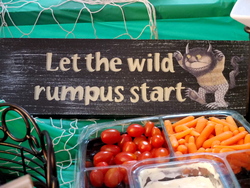 Let the wild
rumpus start